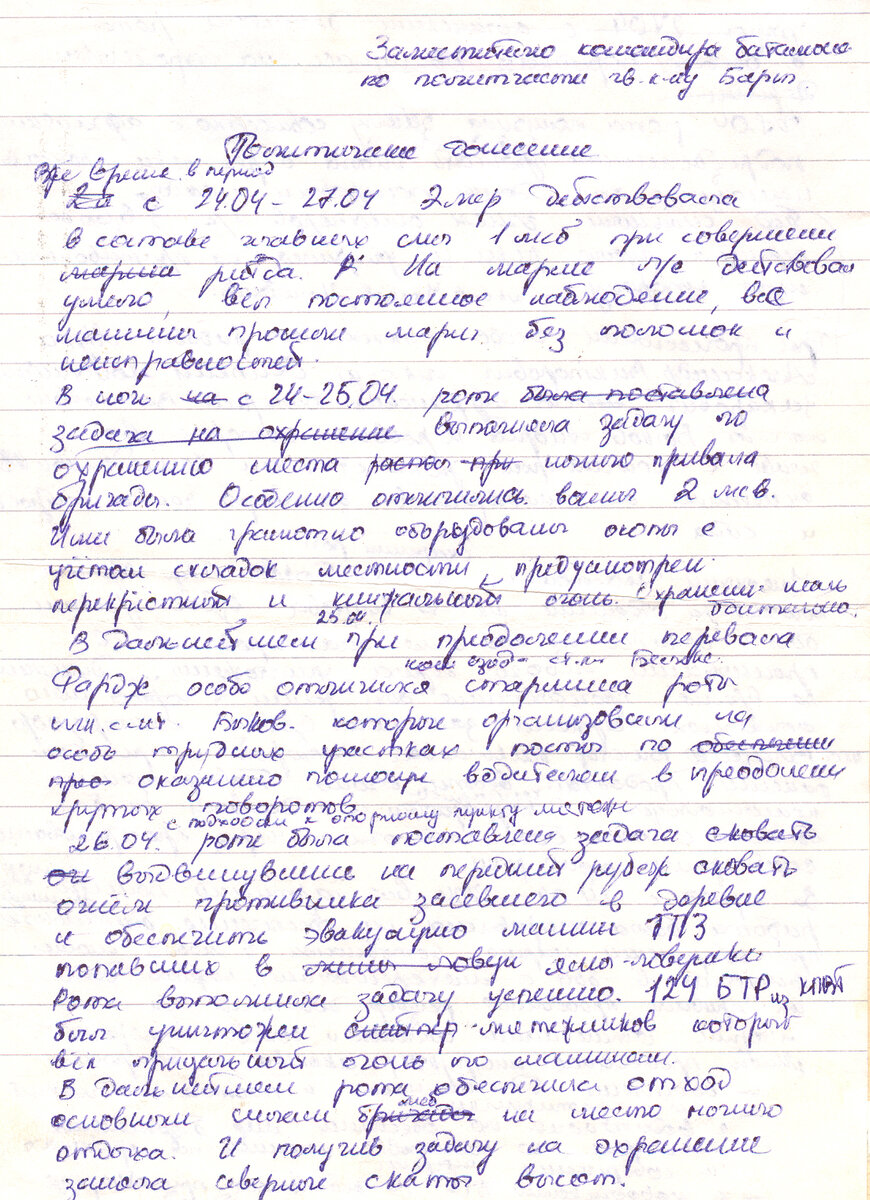 Заместителю командира батальона
по политчасти гв. к-ну Барт.
Политическое донесение
Все время в период
2й с 24.04 - 27.04 2 мср действовала
в составе главных сил 1 мсб при совершении
марша рейда. На марше л/с действовал
умело, вёл постоянное наблюдение, все
машины прошли марш без поломок и
неисправностей.
В ночь на с 24-25.04. рота была поставлена
задача на охранение выполняла задачу по
охранению места распол при ночного привала
бригады. Особенно отличились воины 2 мсв.
Ими была грамотно оборудованы окопы с
учётом складок местности, предусмотрен
перекрёстный и кинжальный огонь. Охранение несли
бдительно.
25.04.
В дальнейшем при преодолении перевала
ком. взвода ст. л-т
Фардж особо отличился старшина роты
мл. с-нт. Быков. которые организовали на
особо трудных участках посты по обеспечению
прео оказанию помощи водителям в преодолении
крутых поворотов
с подходом к опорному пункту мятеж
26.04. роте была поставлена задача сковать
он выдвинувшись на передний рубеж сковать
огнём противника засевшего в деревне
и обеспечить эвакуацию машин ГПЗ
попавших в мины ловуш ямы-ловушки
Рота выполнила задачу успешно. 124 БТР из КПВТ
был уничтожен снайпер мятежников который
вёл прицельный огонь по машинам.
В дальнейшем рота обеспечила отход
мсб
основными силами бригады на место ночного
отдыха. И получив задачу на охранение
заняла северные скаты высот.